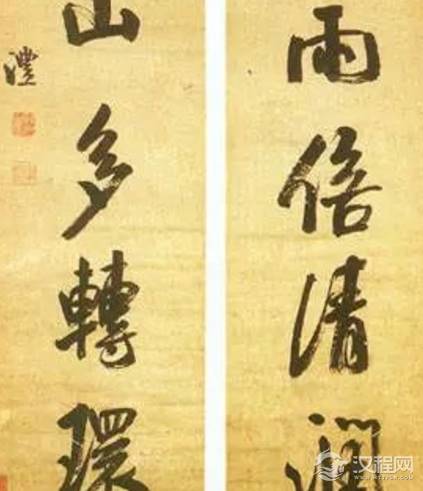 雨倍清
山多轉環
澧
汉程网